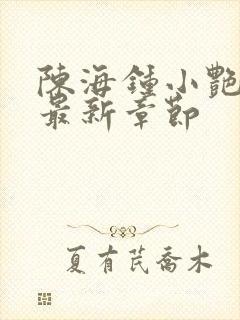 陳海鍾小艷
最新章節
夏有芪喬木